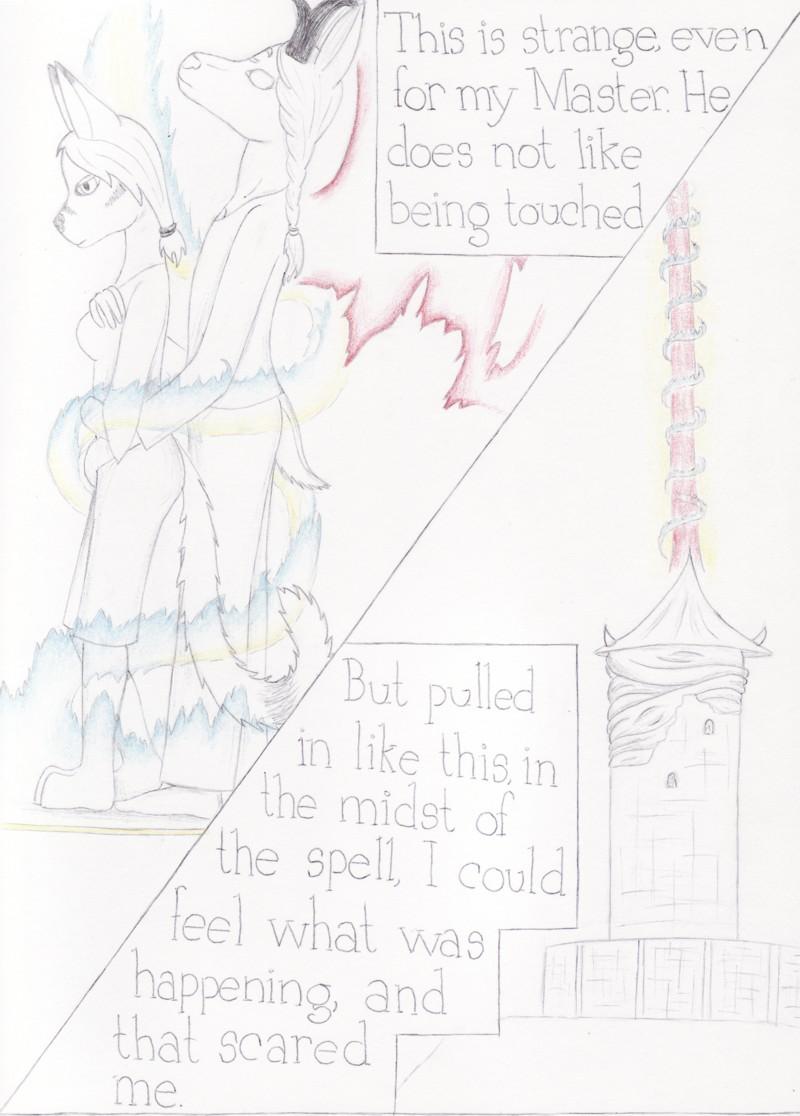 This is strange, even
for my Master. He
does not like
being touched
But pulled
in like this, in
the midst of
the spell, I could
feel what was
happening, and
that scared
me.